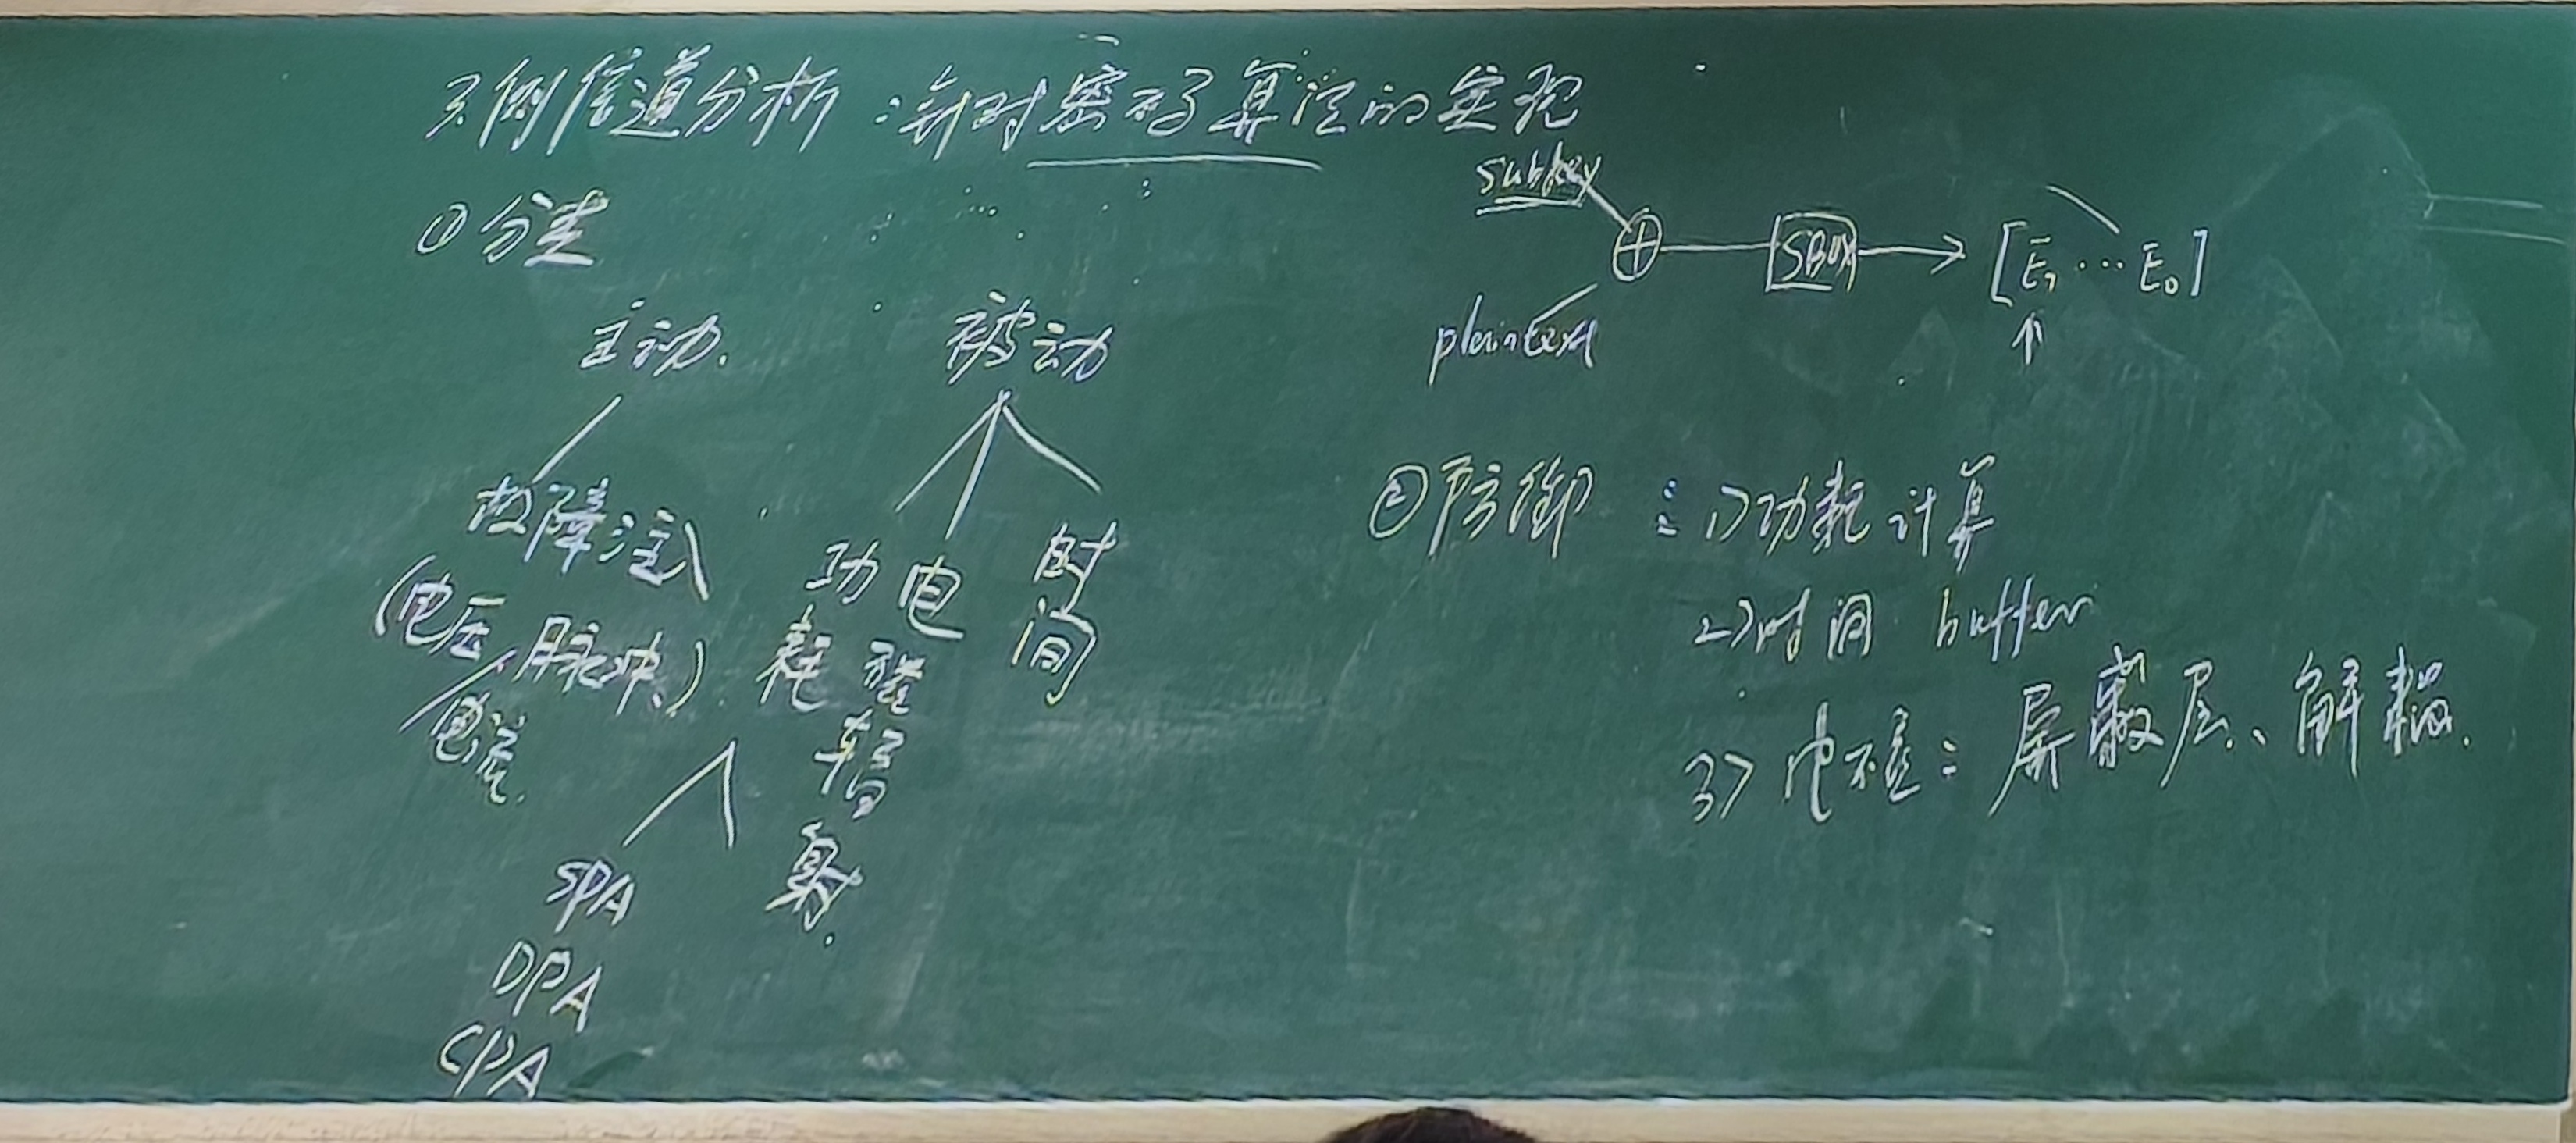 3.侧信道分析：针对密码算法的实现
①分类
主动.
被动
故障注入
(电压、脉冲、)
电流.
功耗
电磁辐射.
时间
SPA
DPA
CPA
subkey
plaintext
⊕
SBOX
[E₇ ⋯ E₀]
②防御：1>功耗计算
2>时间 buffer
3>电磁：屏蔽层、解耦.